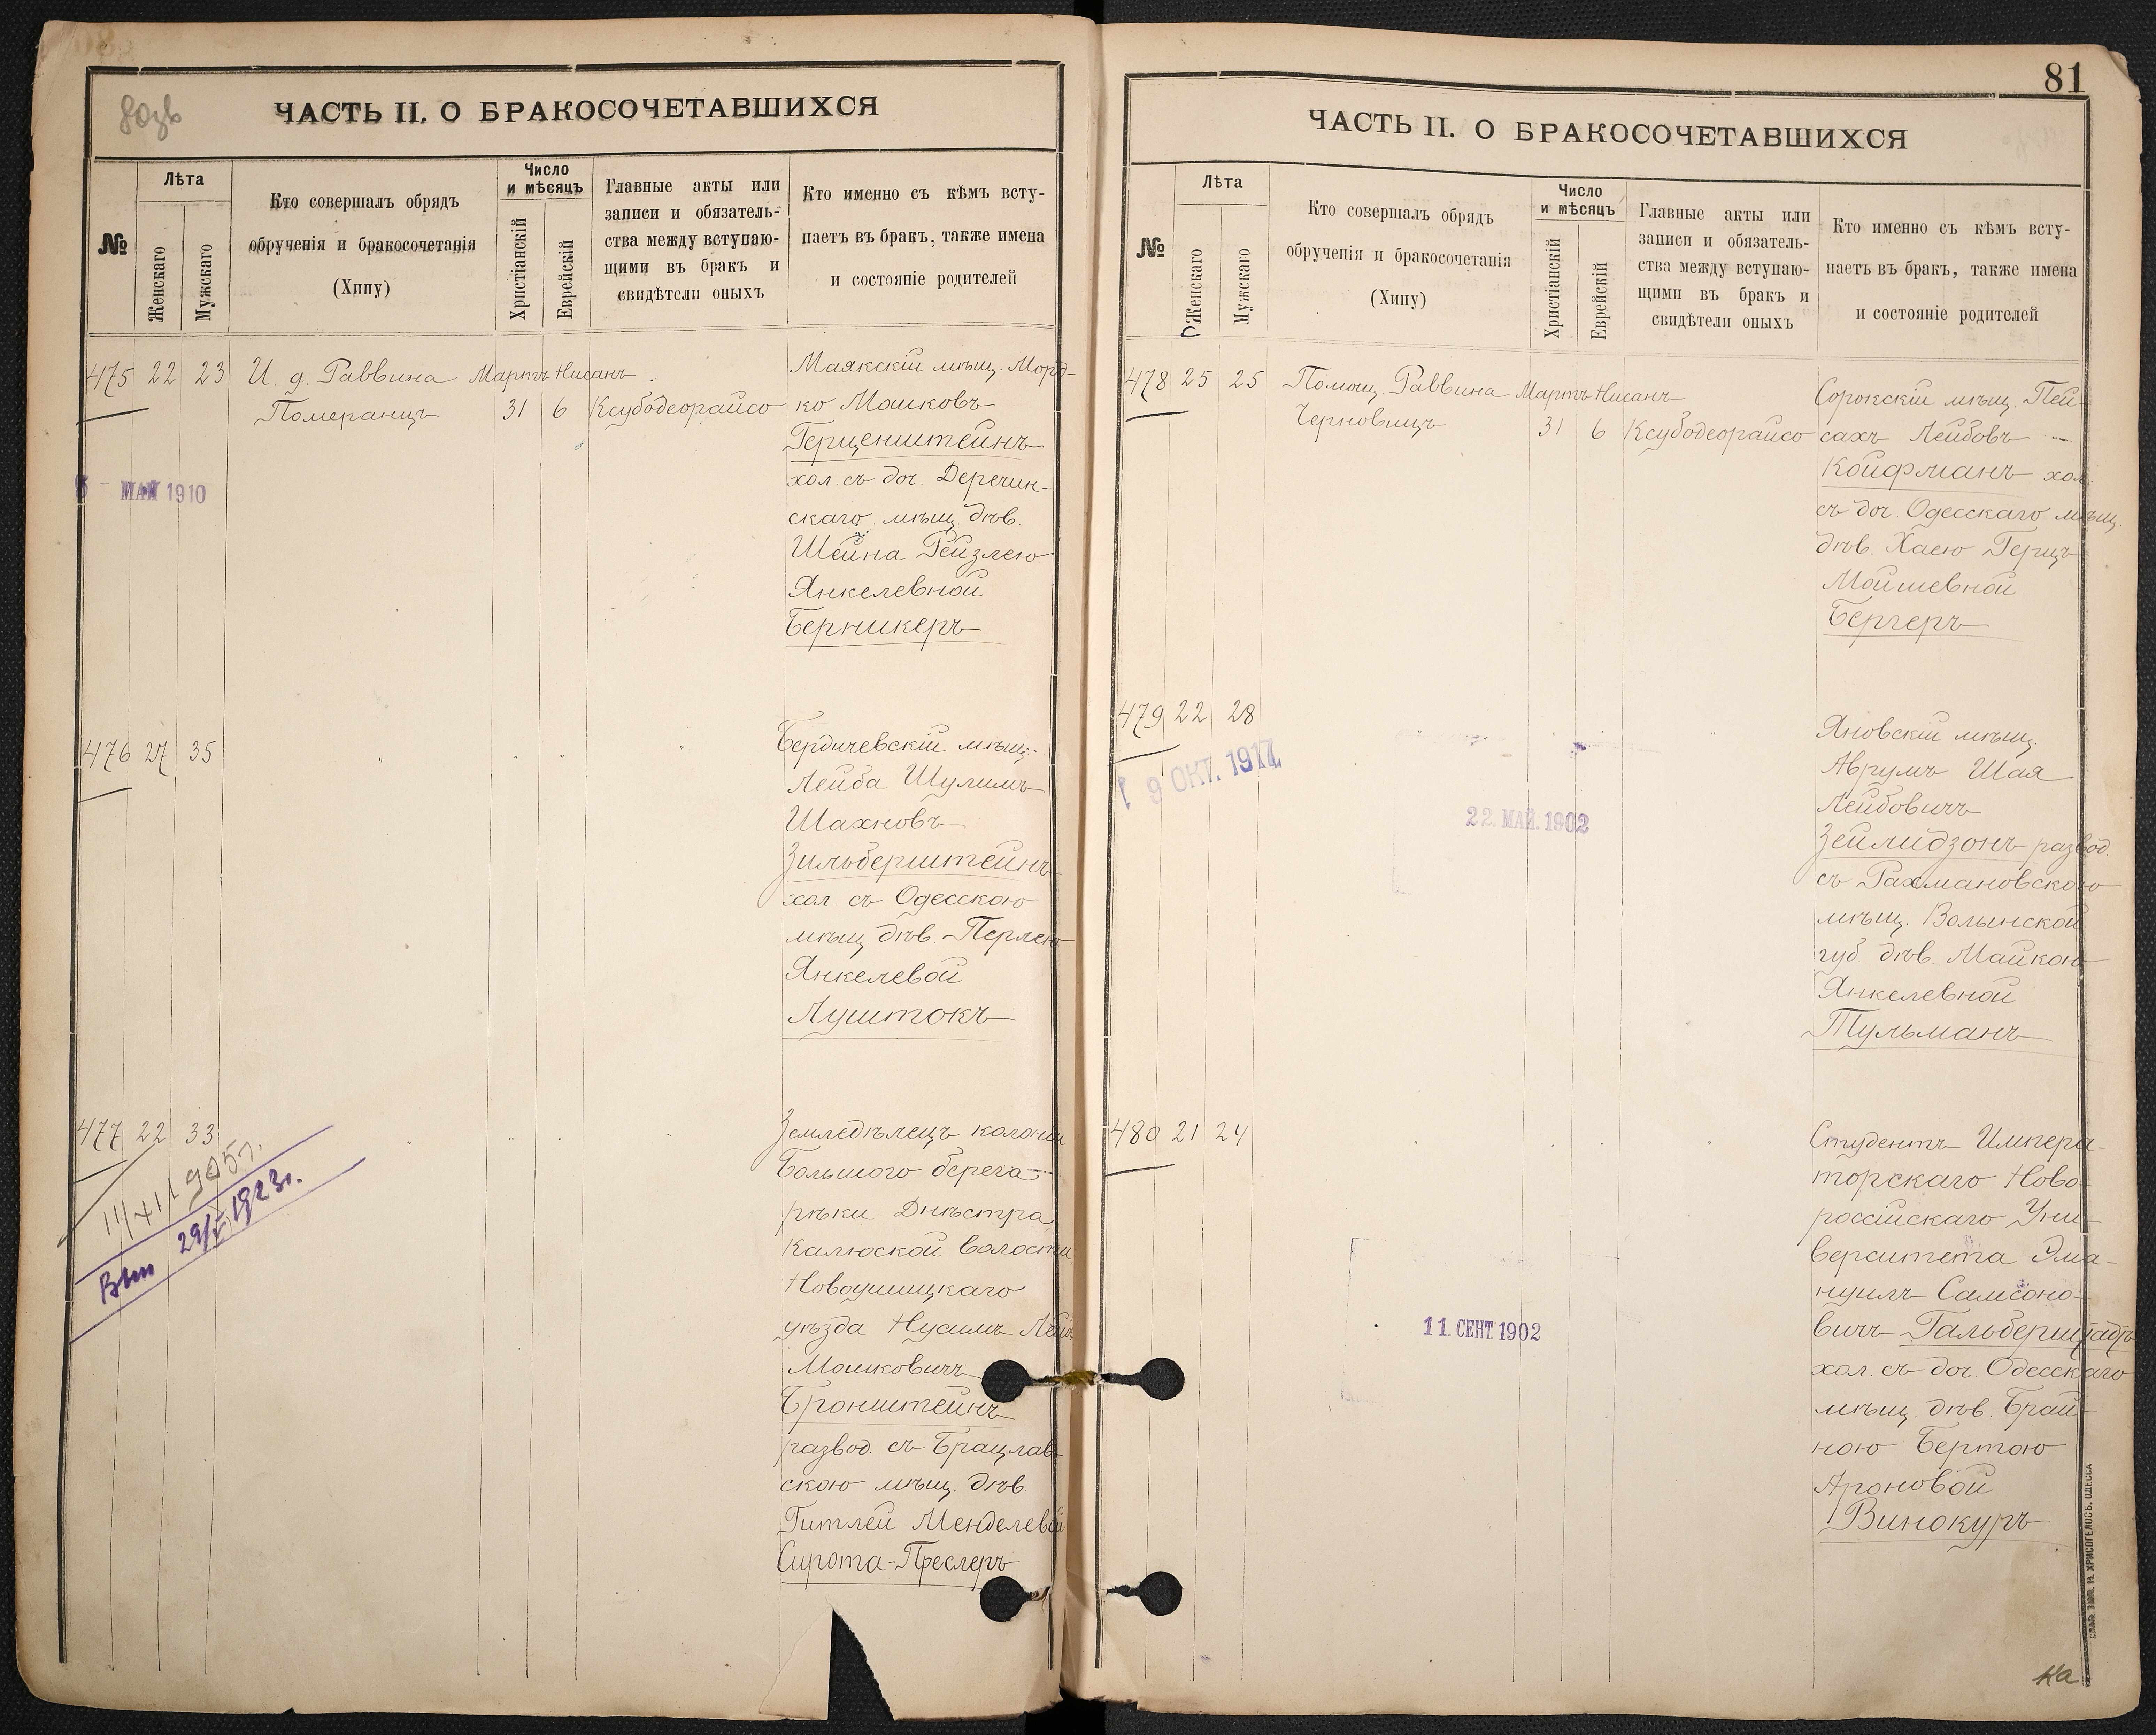 80зв
ЧАСТЬ II. О БРАКОСОЧЕТАВШИХСЯ
№
Лѣта
Женскаго
Мужскаго
Кто совершалъ обрядъ
обрученія и бракосочетанія
(Хипу)
Число
и мѣсяцъ
Христіанскій
Еврейскій
Главные акты или
записи и обязатель-
ства между вступаю-
щими въ бракъ и
свидѣтели оныхъ
Кто именно съ кѣмъ всту-
паетъ въ бракъ, также имена
и состояніе родителей
475 22 23 И. д. Раввина Мартъ Нисанъ
Померанцъ 31 6 Ксубодеорайсо
Маякскій мѣщ. Морд-
ко Мошковъ
Герценштейнъ
хол. съ доч. Деречин-
скаго мѣщ. дѣв.
Шейна Рейзлею
Янкелевной
Берникеръ
МАЙ 1910
476 27 35 " " " "
Бердичевскій мѣщ.
Лейба Шулимъ
Шахновъ
Зильберштейнъ
хол. съ Одесскою
мѣщ. дѣв. Перлею
Янкелевой
Луштокъ
477 22 33 " " " "
Земледѣлецъ колоніи
Большого берега
рѣки Днѣстра
Калюской волости
Новоушицкаго
уѣзда Нусимъ Лейб
Мошковичъ
Бронштейнъ
развод. съ Брацлав-
скою мѣщ. дѣв.
Гитлей Менделевой
Сирота-Преслеръ
14/XII 905 г.
Вып 29/V 1923 г.
81
ЧАСТЬ II. О БРАКОСОЧЕТАВШИХСЯ
№
Лѣта
Женскаго
Мужскаго
Кто совершалъ обрядъ
обрученія и бракосочетанія
(Хипу)
Число
и мѣсяцъ
Христіанскій
Еврейскій
Главные акты или
записи и обязатель-
ства между вступаю-
щими въ бракъ и
свидѣтели оныхъ
Кто именно съ кѣмъ всту-
паетъ въ бракъ, также имена
и состояніе родителей
478 25 25 Помощ. Раввина Мартъ Нисанъ
Черновицъ 31 6 Ксубодеорайсо
Сорокскій мѣщ. Пей-
сахъ Лейбовъ
Койфманъ хол.
съ доч. Одесскаго мѣщ.
дѣв. Хаею Герцъ
Мойшевной
Бергеръ
479 22 28
9 ОКТ. 1917
22. МАЙ. 1902
Яновскій мѣщ.
Аврумъ Шая
Лейбовичъ
Зейлидзонъ развод.
съ Рахмановскою
мѣщ. Волынской
губ дѣв. Майкою
Янкелевной
Тульманъ
480 21 24
11. СЕНТ 1902
Студентъ Импера-
торскаго Ново-
россійскаго Уни-
верситета Эма-
нуилъ Самсоно-
вичъ Гальберштадтъ
хол. съ доч. Одесскаго
мѣщ. дѣв. Брай-
ною Бертою
Ароновой
Винокуръ
СЛАВ. ТИП. Н. ХРИСОГЕЛОСЪ. ОДЕССА